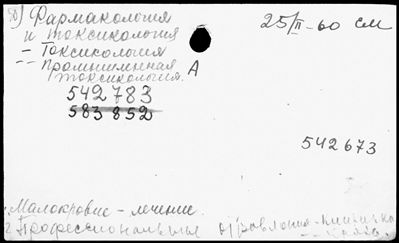 50) Фармакология
и токсикология
25/II-60 см
— Токсикология
— Промышленная
токсикология.
А
542783
583852
542673
1. Малокровие - лечение.
2. Профессиональные отравления-клиника